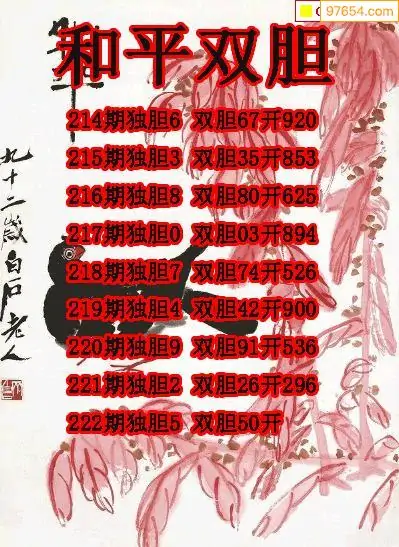 97654.com
和平双胆
214期独胆6 双胆67开920
215期独胆3 双胆35开853
216期独胆8 双胆80开625
217期独胆0 双胆03开894
218期独胆7 双胆74开526
219期独胆4 双胆42开900
220期独胆9 双胆91开536
221期独胆2 双胆26开296
222期独胆5 双胆50开
九十二岁白石老人